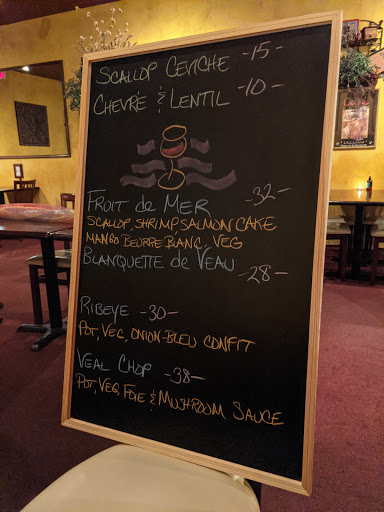 SCALLOP CEVICHE -15-
CHEVRÉ & LENTIL -10-
FRUIT de MER -32-
SCALLOP, SHRIMP, SALMON CAKE
MANGO BEURRE BLANC, VEG
BLANQUETTE de VEAU -28-
RIBEYE -30-
POT, VEG, ONION-BLEU CONFIT
VEAL CHOP -38-
POT, VEG, FOIE & MUSHROOM SAUCE